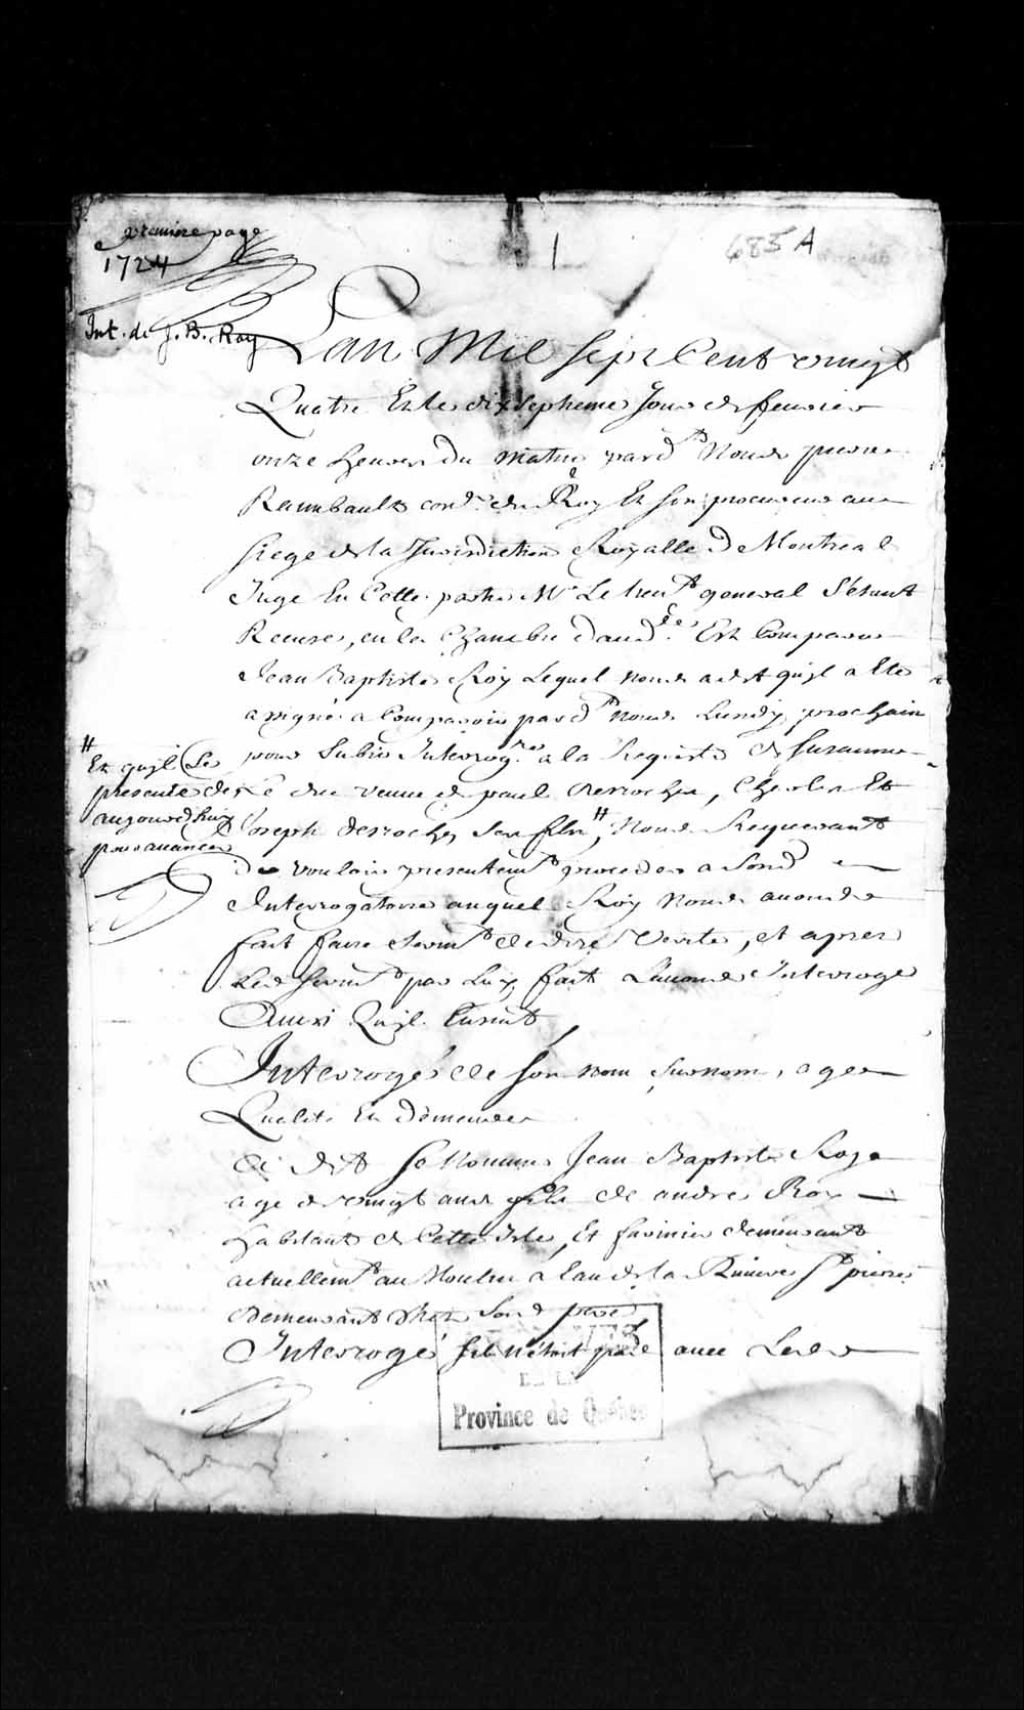 premiere page
1724
1
685 A
Int. de J. B. Roy
Lan Mil sept Cent vingt
Quatre Et le dixseptieme Jour de feurier
onze heures du matin pard.t Nous pierre
Raimbault con.er du Roy Et son procureur au
siege de la Jurisdiction Royalle De Montreal
Juge En Cette partie Mr Le lieut general S'étant
Recusé, en la Chambre daud.ce Est Comparu
Jean Baptiste Roy Lequel nous a dit qu'jl a Eté
assigné a Comparoir pard.t nous Lundy prochain
pour Subir Interrog.re a la Requeste de Susanne
Le duc veuue de paul desroches, Charles Et
Joseph desroches Ses fils #, Nous Requerant
# Et qujl Se
presente des
aujourdhuy
pour auancer
de vouloir presentemt proceder a Sond
Interrogatoire auquel Roy Nous auons
fait faire Sermt de dire Verité, et apres
Led Sermt par Luy fait Lauons Interrogé
Ainsi Qujl Ensuit
Interrogé de Son nom surnom, age
Qualité Et Demeure
A dit Se Nommer Jean Baptiste Roy
agé de vingt ans fils de andré Roy
habitant de Cette Isle, Et farinier demeurant
actuellemt au Moulin a Eau de la Riuiere St pierre
demeurant chez Sond pere
Interrogé Sil n'étoit pas le auec Led
Province de Québec